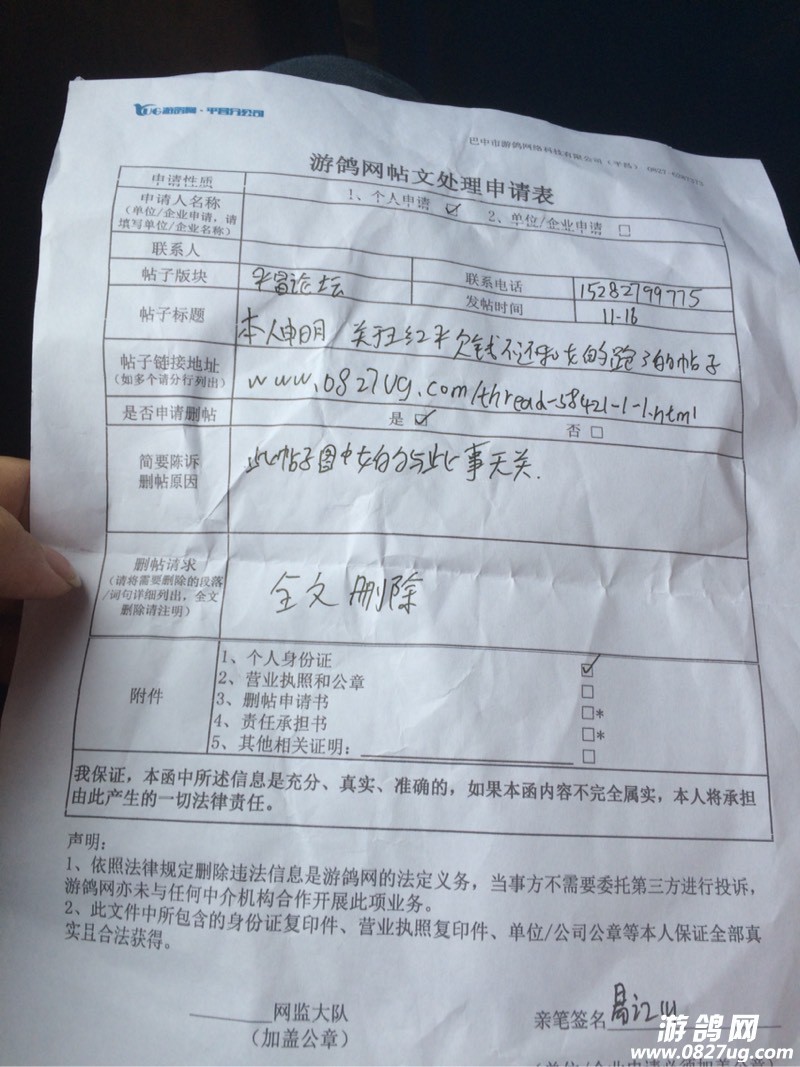 UG游鸽网·平昌分公司
巴中市游鸽网络科技有限公司（平昌） 0827-
游鸽网帖文处理申请表
申请性质 1、个人申请 ☑ 2、单位/企业申请 □
申请人名称
（单位/企业申请，请
填写单位/企业名称）
联系人 联系电话 15282799775
帖子版块 平昌论坛 发帖时间 11-16
帖子标题 本人申明 关于王红平欠钱不还和女的跑了的帖子
帖子链接地址
（如多个请分行列出） www.0827ug.com/thread-58421-1-1.html
是否申请删帖 是 ☑ 否 □
简要陈诉
删帖原因 此帖子图中女的与此事无关.
删帖请求
（请将需要删除的段落
/词句详细列出，全文
删除请注明） 全文删除
附件
1、个人身份证 ☑
2、营业执照和公章 □
3、删帖申请书 □*
4、责任承担书 □*
5、其他相关证明： □
我保证，本函中所述信息是充分、真实、准确的，如果本函内容不完全属实，本人将承担
由此产生的一切法律责任。
声明：
1、依照法律规定删除违法信息是游鸽网的法定义务，当事方不需要委托第三方进行投诉，
游鸽网亦未与任何中介机构合作开展此项业务。
2、此文件中所包含的身份证复印件、营业执照复印件、单位/公司公章等本人保证全部真
实且合法获得。
网监大队 亲笔签名
（加盖公章）
游鸽网
www.0827ug.com